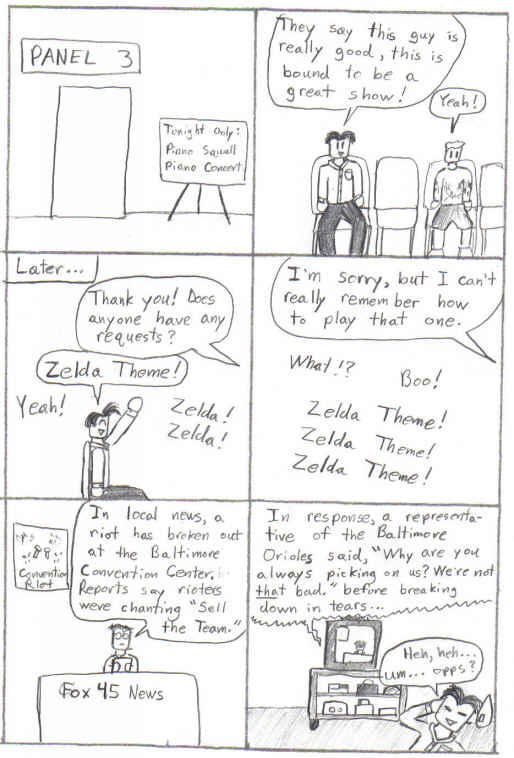 PANEL 3
Tonight Only:
Piano Squall
Piano Concert
They say this guy is
really good, this is
bound to be a
great show!
Yeah!
Later...
Thank you! Does
anyone have any
requests?
Zelda Theme!
Yeah!
Zelda!
Zelda!
I'm sorry, but I can't
really remember how
to play that one.
What!?
Boo!
Zelda Theme!
Zelda Theme!
Zelda Theme!
Convention
Riot
In local news, a
riot has broken out
at the Baltimore
Convention Center.
Reports say rioters
were chanting "Sell
the Team."
Fox 45 News
In response, a representa-
tive of the Baltimore
Orioles said, "Why are you
always picking on us? We're not
that bad." before breaking
down in tears...
Heh, heh...
um... opps?